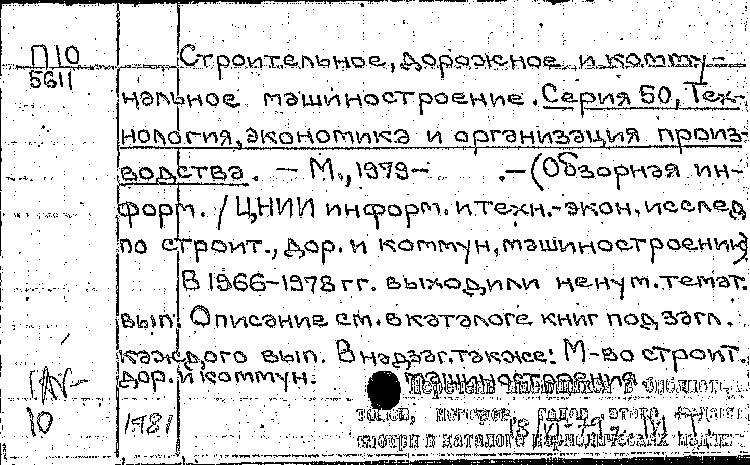 П10
5611
Строительное, дорожное и комму-
нальное машиностроение. Серия 50, Тех-
нология, экономика и организация произ-
водства. — М., 1979— .—(Обзорная ин-
форм. / ЦНИИ информ. и техн.-экон. исслед
по строит., дор. и коммун, машиностроению)
В 1966—1978 гг. выходили ненум. темат.
вып. Описание см. в каталоге книг под загл.
каждого вып. В надзаг. также: М-во строит.
дор. и коммун. машиностроения
10 1981